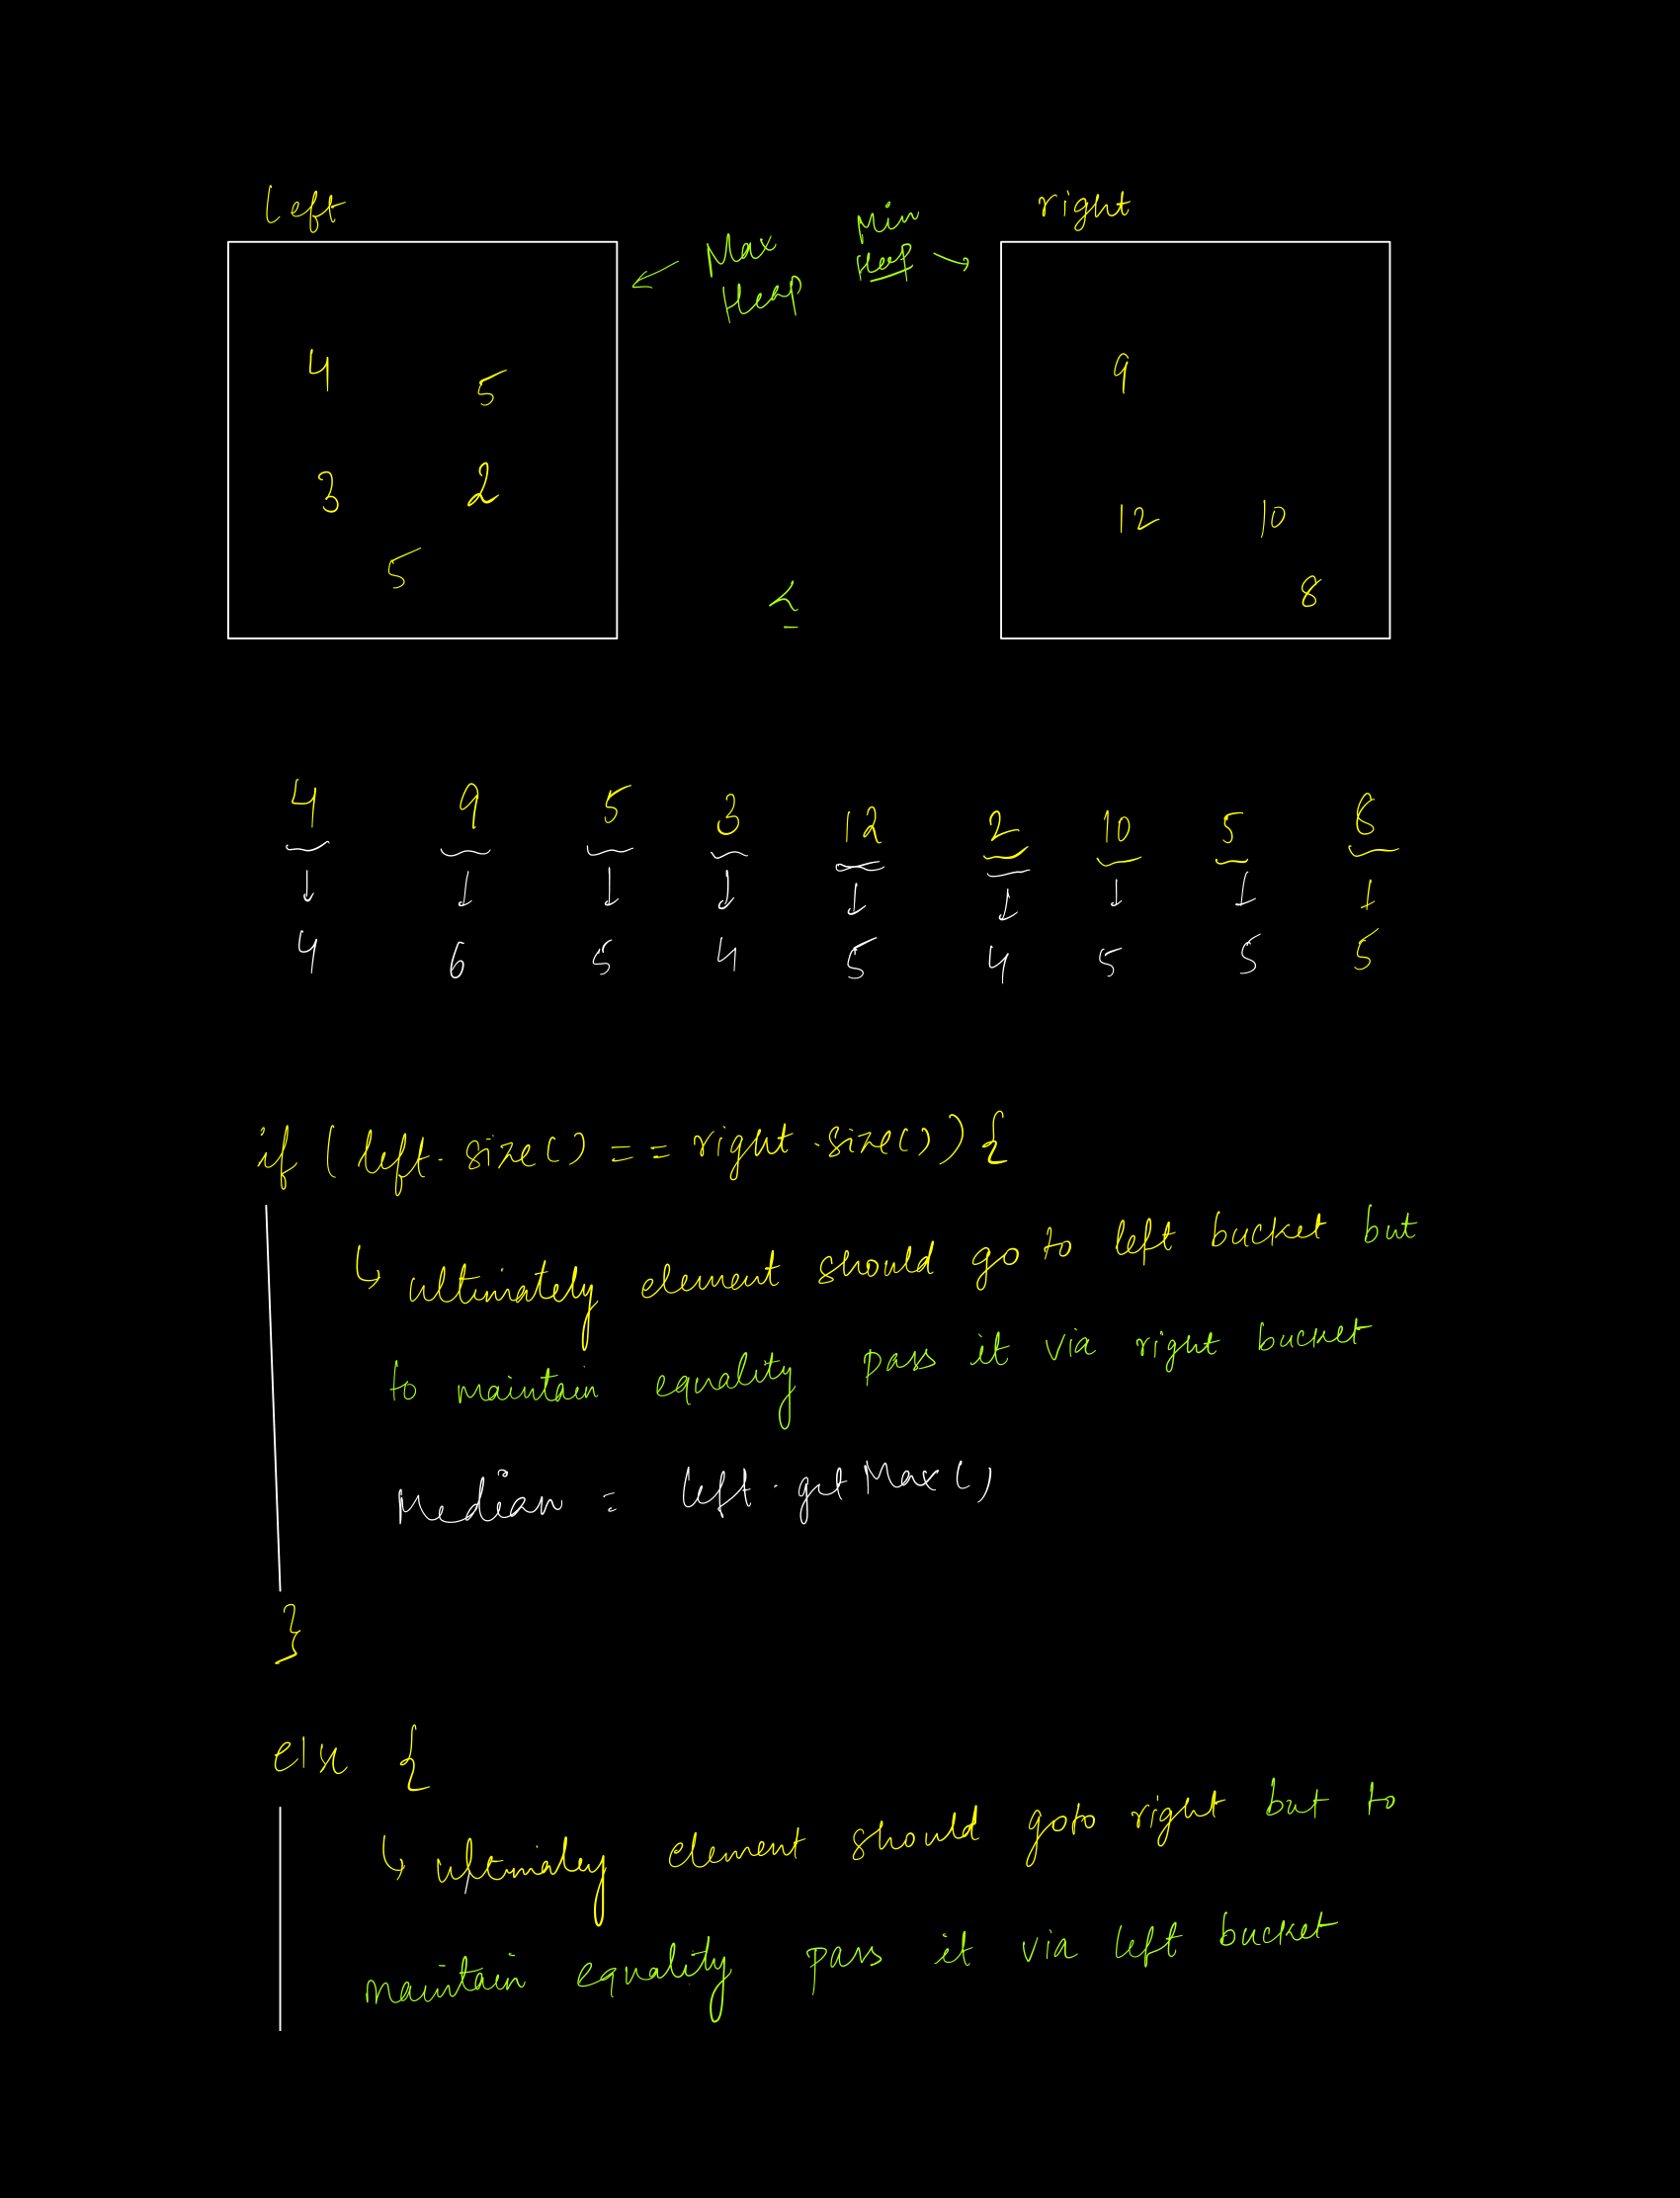 left
Max Heap
Min Heap
right
4 5
3 2
5
9
12 10
8
≤
4 9 5 3 12 2 10 5 8
4 6 5 4 5 4 5 5 5
if (left.size() == right.size()) {
↳ ultimately element should go to left bucket but
to maintain equality pass it via right bucket
Median = left.getMax()
}
else {
↳ ultimaley element should goto right but to
maintain equality pass it via left bucket